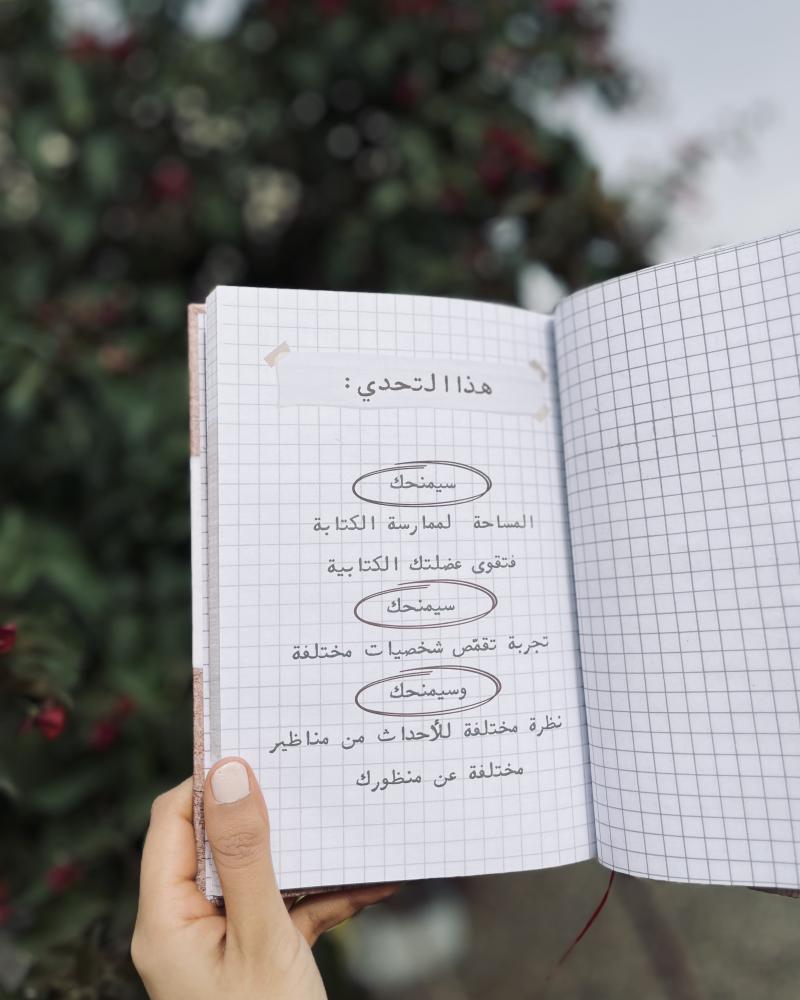 هذا التحدي:
سيمنحك
المساحة لممارسة الكتابة
فتقوى عضلتك الكتابية
سيمنحك
تجربة تقمّص شخصيات مختلفة
وسيمنحك
نظرة مختلفة للأحداث من مناظير
مختلفة عن منظورك